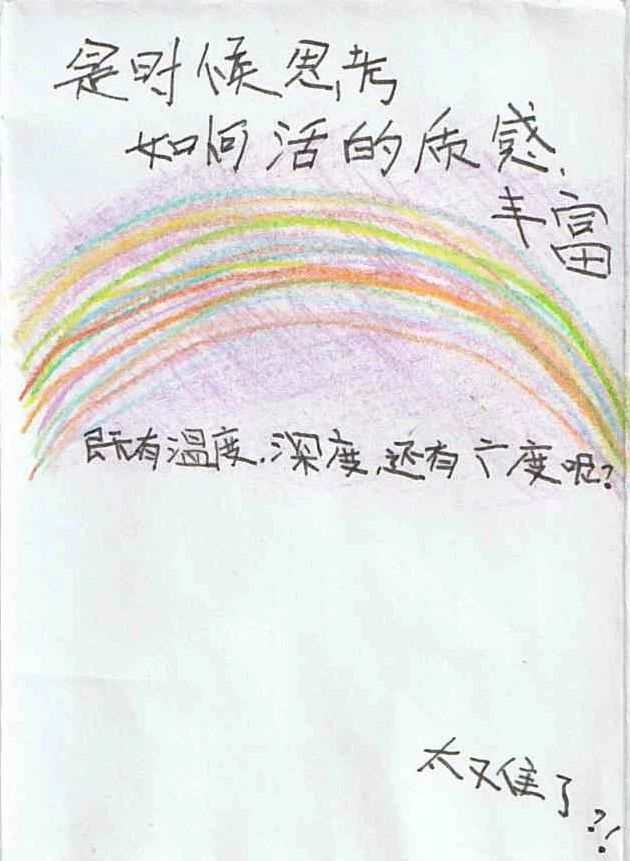 是时候思考
如何活的质感、
丰富
既有温度、深度、还有广度呢?
太难了?!